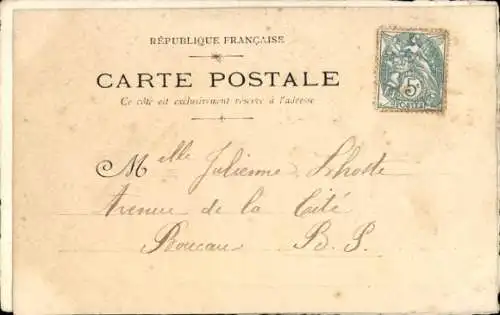 RÉPUBLIQUE FRANÇAISE
CARTE POSTALE
Ce côté est exclusivement réservé à l'adresse
5c
Mlle Julienne Lhoste
Avenue de la Caité
Boucau B. P.